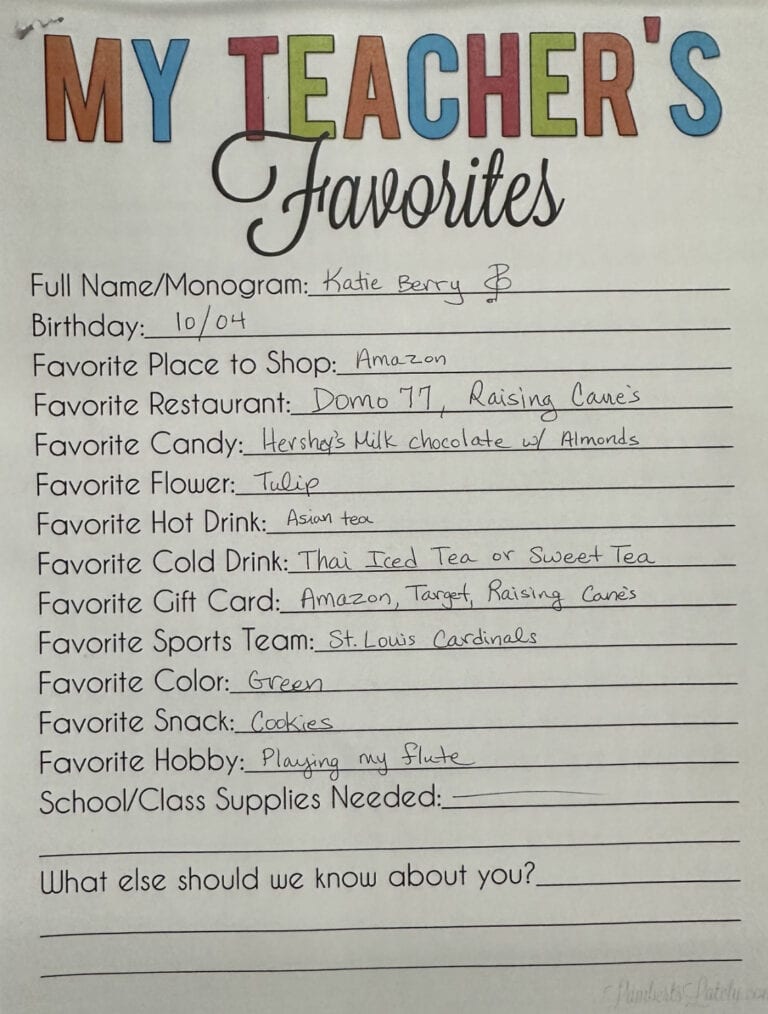 MY TEACHER'S
Favorites
Full Name/Monogram: Katie Berry
Birthday: 10/04
Favorite Place to Shop: Amazon
Favorite Restaurant: Domo 77, Raising Cane's
Favorite Candy: Hershey's Milk chocolate w/ Almonds
Favorite Flower: Tulip
Favorite Hot Drink: Asian tea
Favorite Cold Drink: Thai Iced Tea or Sweet Tea
Favorite Gift Card: Amazon, Target, Raising Cane's
Favorite Sports Team: St. Louis Cardinals
Favorite Color: Green
Favorite Snack: Cookies
Favorite Hobby: Playing my flute
School/Class Supplies Needed:
What else should we know about you?
Lamberts Lately.com